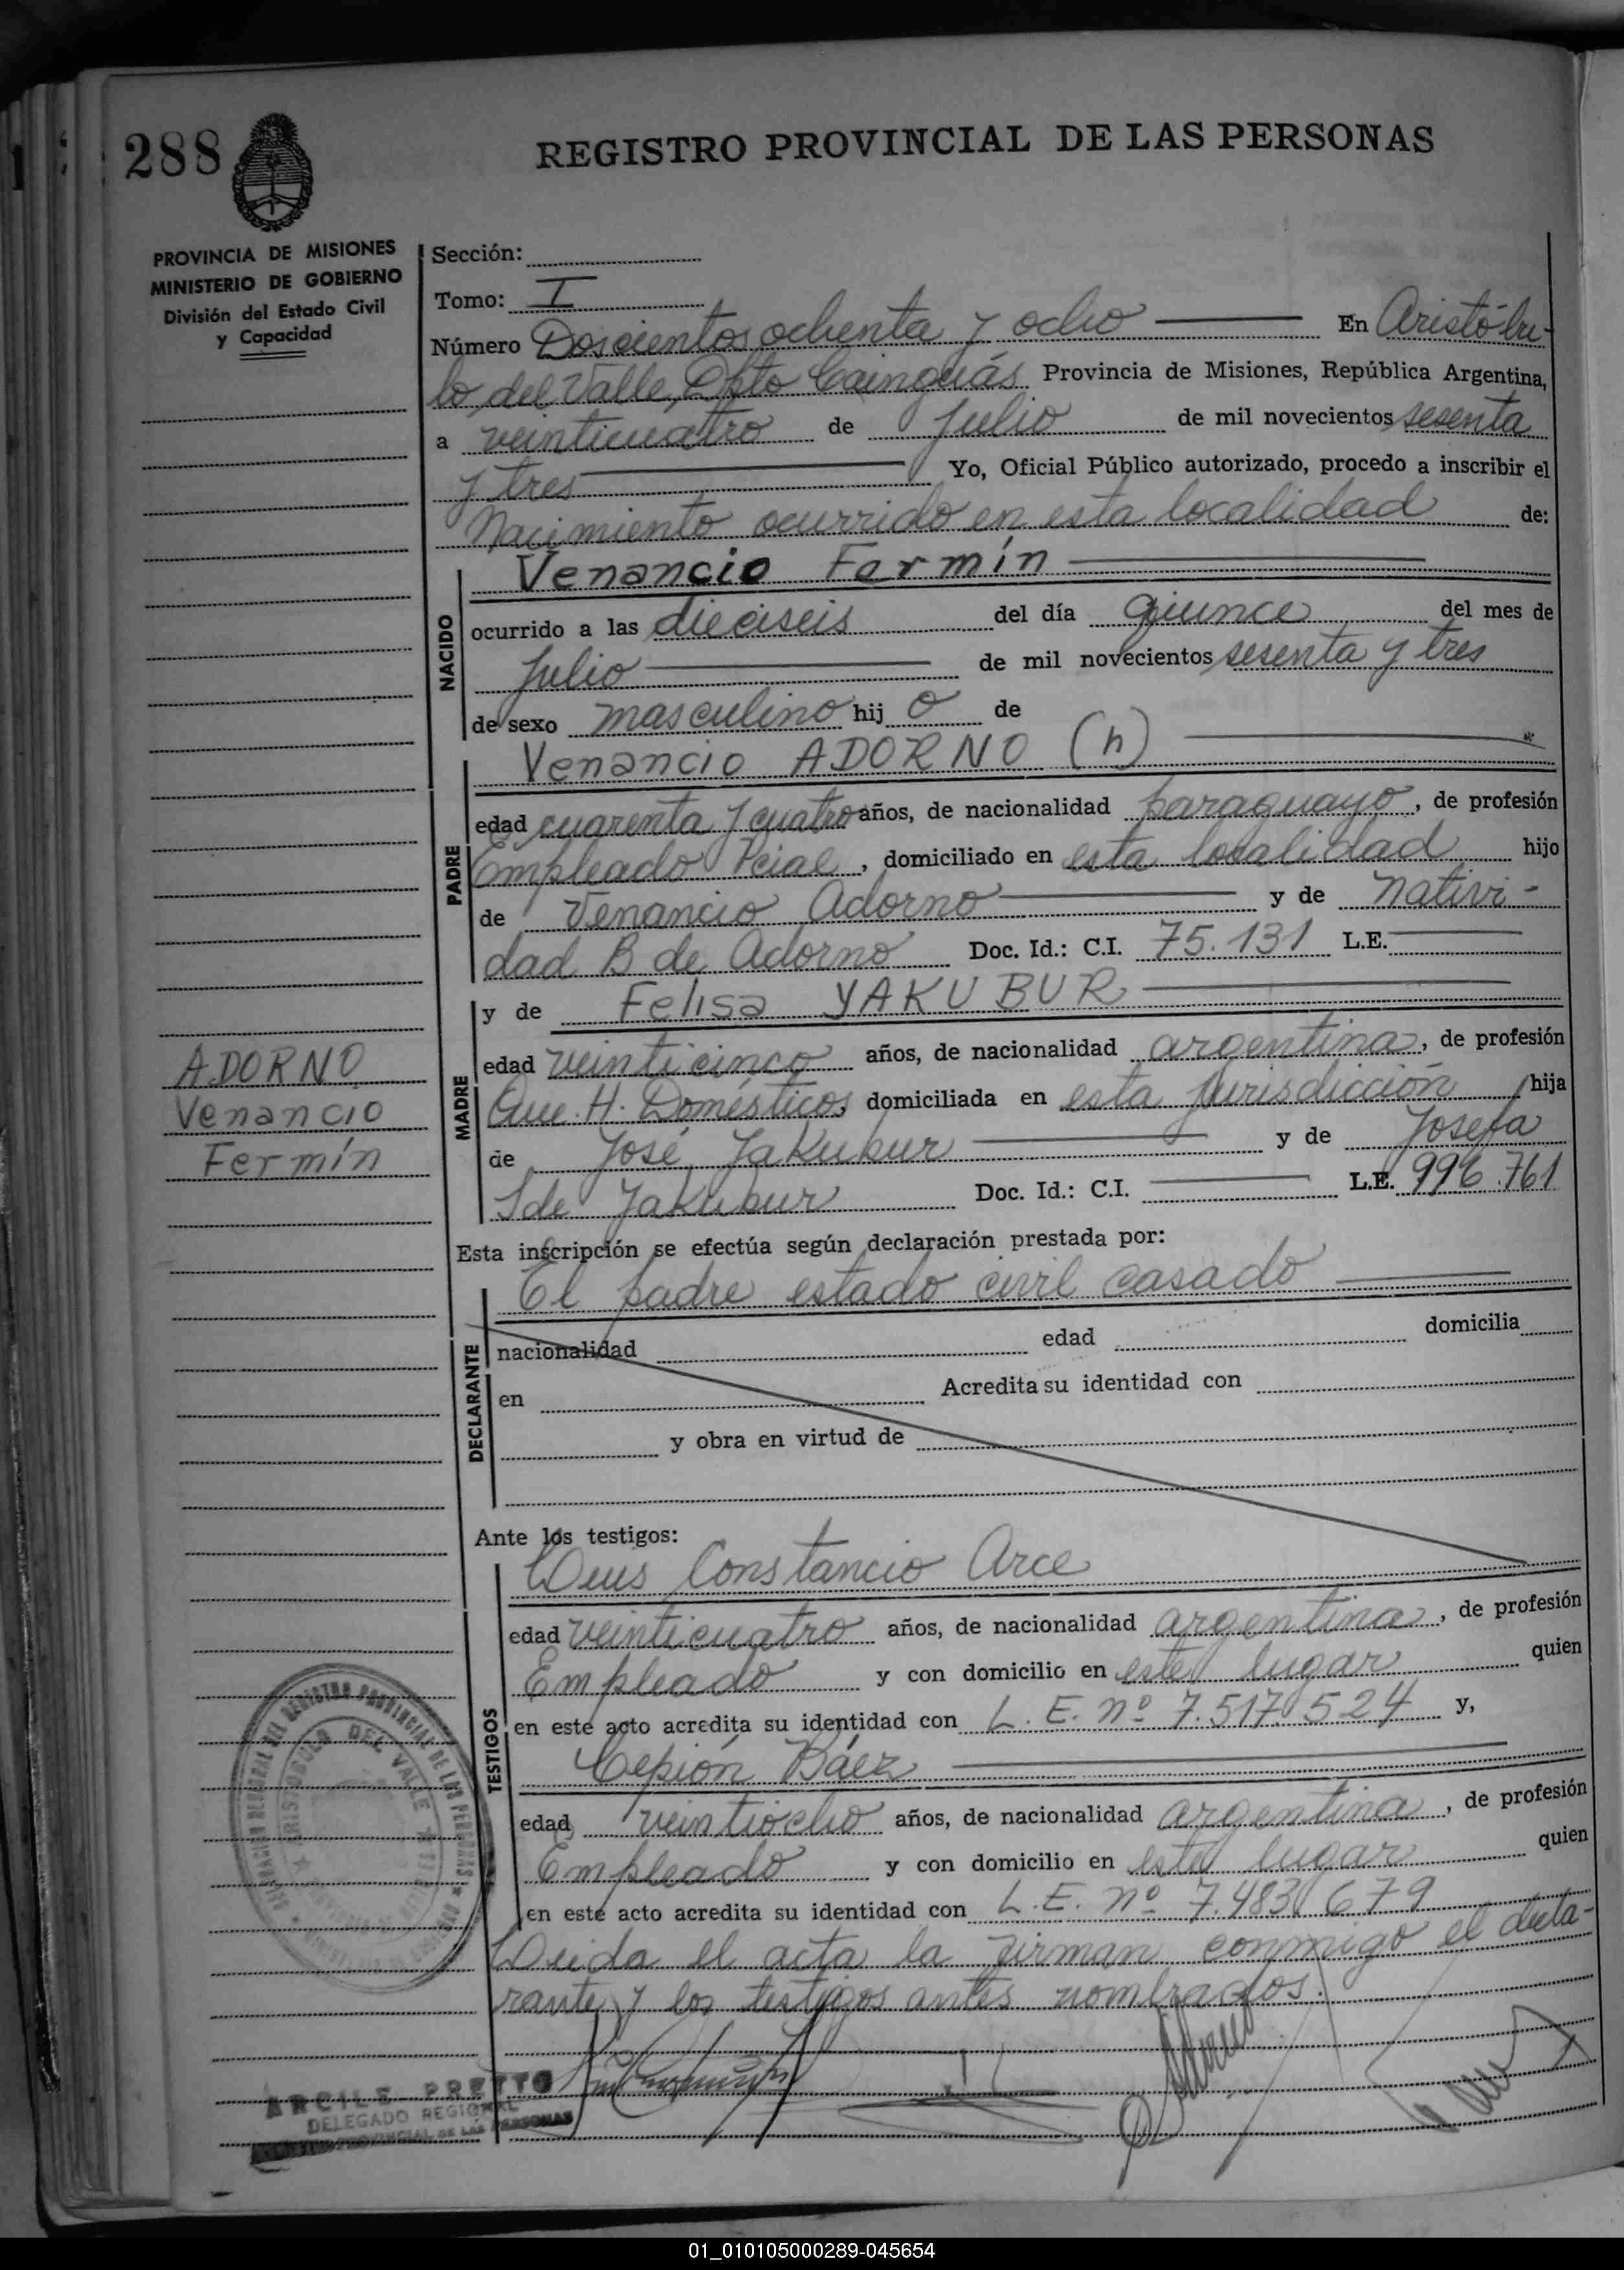 288
REGISTRO PROVINCIAL DE LAS PERSONAS
PROVINCIA DE MISIONES
MINISTERIO DE GOBIERNO
División del Estado Civil
y Capacidad
Sección:
Tomo: I
Número Doscientos ochenta y ocho En Aristóbu-
lo del Valle, Dpto Cainguás Provincia de Misiones, República Argentina,
a veinticuatro de Julio de mil novecientos sesenta
y tres Yo, Oficial Público autorizado, procedo a inscribir el
Nacimiento ocurrido en esta localidad de:
NACIDO
Venancio Fermín
ocurrido a las dieciseis del día quince del mes de
Julio de mil novecientos sesenta y tres
de sexo masculino hij o de
PADRE
Venancio ADORNO (h)
edad cuarenta y cuatro años, de nacionalidad paraguayo, de profesión
Empleado Pcial, domiciliado en esta localidad hijo
de Venancio Adorno y de Nativi-
dad B de Adorno Doc. Id.: C.I. 75.131 L.E.
y de Felisa YAKUBUR
MADRE
edad veinticinco años, de nacionalidad argentina, de profesión
Que. H. Domésticos, domiciliada en esta jurisdicción hija
de José Yakubur y de Josefa
S de Yakubur Doc. Id.: C.I. L.E. 996.761
ADORNO
Venancio
Fermín
Esta inscripción se efectúa según declaración prestada por:
DECLARANTE
El padre estado civil casado
nacionalidad edad domicilia
en Acredita su identidad con
y obra en virtud de
Ante los testigos:
TESTIGOS
Constancio Arce
edad veinticuatro años, de nacionalidad argentina, de profesión
Empleado y con domicilio en este lugar quien
en este acto acredita su identidad con L. E. nº 7.517.524 y,
Cepión Báez
edad veintiocho años, de nacionalidad argentina, de profesión
Empleado y con domicilio en este lugar quien
en este acto acredita su identidad con L. E. nº 7.483.679
Leida el acta la firman conmigo el decla-
rante y los testigos antes nombrados.
ARISTOBULO DEL VALLE
ARCILE PRETTO
DELEGADO REGIONAL
REGISTRO PROVINCIAL DE LAS PERSONAS
01_010105000289-045654